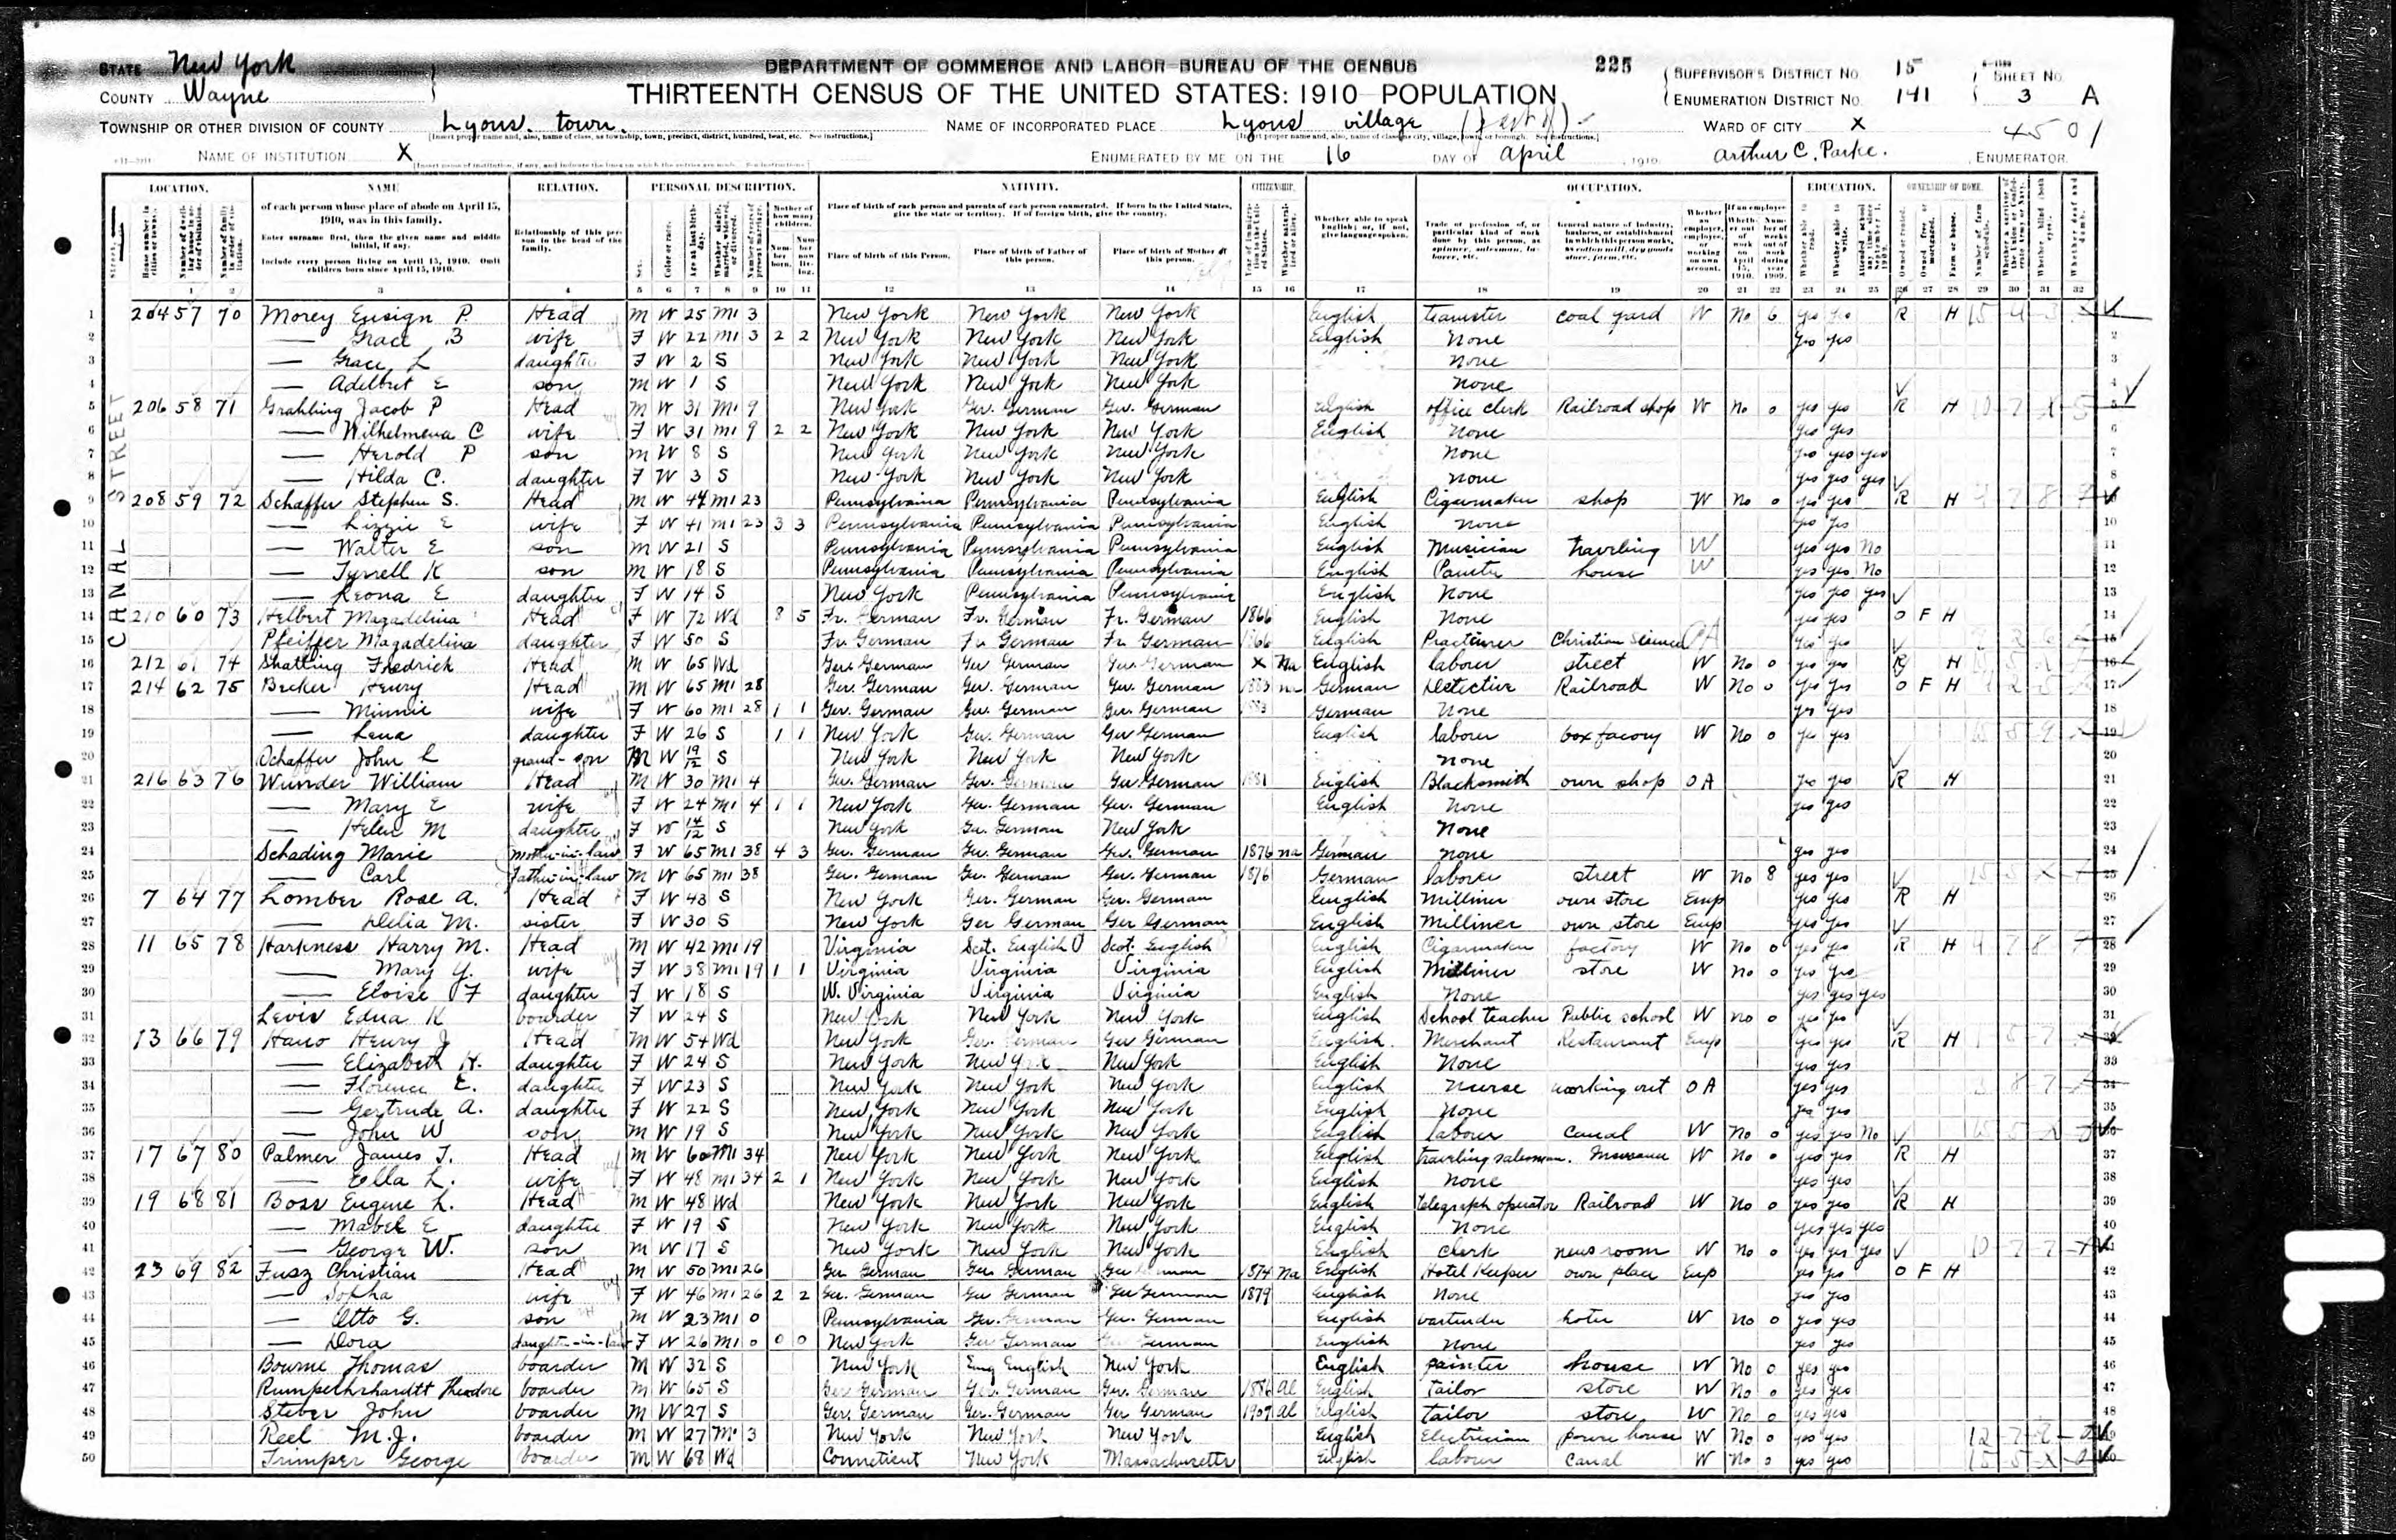 STATE New York
COUNTY Wayne
DEPARTMENT OF COMMERCE AND LABOR—BUREAU OF THE CENSUS
THIRTEENTH CENSUS OF THE UNITED STATES: 1910 POPULATION
225
SUPERVISOR'S DISTRICT No. 15
ENUMERATION DISTRICT No. 141
SHEET No. 3 A
TOWNSHIP OR OTHER DIVISION OF COUNTY Lyons town.
NAME OF INCORPORATED PLACE Lyons village
WARD OF CITY X
4501
NAME OF INSTITUTION X
ENUMERATED BY ME ON THE 16 DAY OF April, 1910.
Arthur C. Parke. ENUMERATOR.
LOCATION. NAME RELATION. PERSONAL DESCRIPTION. NATIVITY. CITIZENSHIP. OCCUPATION. EDUCATION. OWNERSHIP OF HOME.
of each person whose place of abode on April 15, 1910, was in this family.
Enter surname first, then the given name and middle initial, if any.
Include every person living on April 15, 1910. Omit children born since April 15, 1910.
Relationship of this person to the head of the family.
Place of birth of each person and parents of each person enumerated. If born in the United States, give the state or territory. If of foreign birth, give the country.
Place of birth of this Person. Place of birth of Father of this person. Place of birth of Mother of this person.
Whether able to speak English; or, if not, give language spoken.
CANAL STREET
1 204 57 70 Morey Ensign P. Head M W 25 M1 3 New York New York New York English teamster coal yard W No 6 yes yes R H
2 — Grace B wife F W 22 M1 3 2 2 New York New York New York English None yes yes
3 — Grace L daughter F W 2 S New York New York New York None
4 — Adelbert E son M W 1 S New York New York New York None
5 206 58 71 Grahling Jacob P Head M W 31 M1 9 New York Ger. German Ger. German English office clerk Railroad shop W No 0 yes yes R H
6 — Wilhelmena C wife F W 31 M1 9 2 2 New York New York New York English None yes yes
7 — Herold P son M W 8 S New York New York New York None yes yes yes
8 — Hilda C. daughter F W 3 S New York New York New York None yes yes yes
9 208 59 72 Schaffer Stephen S. Head M W 44 M1 23 Pennsylvania Pennsylvania Pennsylvania English Cigarmaker shop W No 0 yes yes R H
10 — Lizzie E wife F W 41 M1 23 3 3 Pennsylvania Pennsylvania Pennsylvania English None yes yes
11 — Walter E son M W 21 S Pennsylvania Pennsylvania Pennsylvania English Musician traveling W yes yes No
12 — Tyrrell K son M W 18 S Pennsylvania Pennsylvania Pennsylvania English Painter house W yes yes No
13 — Leona E daughter F W 14 S New York Pennsylvania Pennsylvania English None yes yes yes
14 210 60 73 Helbert Magadelina Head F W 72 Wd 8 5 Fr. German Fr. German Fr. German 1866 English None yes yes O F H
15 Pfeiffer Magadelina daughter F W 50 S Fr. German Fr German Fr German 1866 English Practicioner Christian Science OA yes yes
16 212 61 74 Shatting Fredrick Head M W 65 Wd Ger. German Ger German Ger. German X Na English laborer street W No 0 yes yes R H
17 214 62 75 Becker Henry Head M W 65 M1 28 Ger. German Ger. German Ger. German 1883 na German Detective Railroad W No 0 yes yes O F H
18 — Minnie wife F W 60 M1 28 1 1 Ger. German Ger. German Ger. German 1883 German None yes yes
19 — Lena daughter F W 26 S 1 1 New York Ger. German Ger German English laborer box facory W No 0 yes yes
20 Schaffer John L grand-son M W 19/12 S New York New York New York None
21 216 63 76 Wunder William Head M W 30 M1 4 Ger. German Ger. German Ger German 1881 English Blacksmith own shop OA yes yes R H
22 — Mary E wife F W 24 M1 4 1 1 New York Ger. German Ger. German English None yes yes
23 — Helen M daughter F W 14/12 S New York Ger. German New York None
24 Schading Marie Mother-in-law F W 65 M1 38 4 3 Ger. German Ger. German Ger. German 1876 na German none yes yes
25 — Carl Father-in-law M W 65 M1 38 Ger. German Ger. German Ger. German 1876 German laborer street W No 8 yes yes
26 7 64 77 Lomber Rose A. Head F W 43 S New York Ger. German Ger. German English Milliner own store Emp yes yes R H
27 — Delia M. sister F W 30 S New York Ger German Ger German English Milliner own store Emp yes yes
28 11 65 78 Harkness Harry M. Head M W 42 M1 19 Virginia Sct. English Scot. English English Cigarmaker factory W No 0 yes yes R H
29 — Mary Y. wife F W 38 M1 19 1 1 Virginia Virginia Virginia English Milliner store W no 0 yes yes
30 — Eloise F daughter F W 18 S W. Virginia Virginia Virginia English None yes yes yes
31 Levis Edna K boarder F W 24 S New York New York New York English School teacher Public school W no 0 yes yes
32 13 66 79 Hano Henry J Head M W 54 Wd New York Ger. German Ger German English Merchant Restaurant Emp yes yes R H
33 — Elizabeth H. daughter F W 24 S New York New York New York English None yes yes
34 — Florence E. daughter F W 23 S New York New York New York English Nurse working out OA yes yes
35 — Gertrude A. daughter F W 22 S New York New York New York English None yes yes
36 — John W son M W 19 S New York New York New York English laborer canal W No 0 yes yes No
37 17 67 80 Palmer James T. Head M W 60 M1 34 New York New York New York English traveling salesman. W No 0 yes yes R H
38 — Ella L. wife F W 48 M1 34 2 1 New York New York New York English None yes yes
39 19 68 81 Boss Eugene L. Head M W 48 Wd New York New York New York English telegraph operator Railroad W No 0 yes yes R H
40 — Mabel E daughter F W 19 S New York New York New York English None yes yes yes
41 — George W. son M W 17 S New York New York New York English Clerk news room W No 0 yes yes yes
42 23 69 82 Fusz Christian Head M W 50 M1 26 Ger German Ger. German Ger German 1874 Na English Hotel Keeper own place Emp yes yes O F H
43 — Sopha wife F W 46 M1 26 2 2 Ger. German Ger German Ger German 1879 English None yes yes
44 — Otto G. son M W 23 M1 0 Pennsylvania Ger. German Ger. German English bartender hotel W No 0 yes yes
45 — Dora daughter-in-law F W 26 M1 0 0 0 New York Ger German Ger German English None yes yes
46 Bourne Thomas boarder M W 32 S New York Eng English New York English painter house W No 0 yes yes
47 Rumpelhrhardtt Theodore boarder M W 65 S Ger German Ger. German Ger. German 1886 al English tailor store W No 0 yes yes
48 Steber John boarder M W 27 S Ger. German Ger. German Ger German 1907 al English tailor store W No 0 yes yes
49 Reel M. J. boarder M W 27 M1 3 New York New York New York English Electrician power house W No 0 yes yes
50 Trimper George boarder M W 68 Wd Conneticut New York Massachusetts English laborer Canal W No 0 yes yes